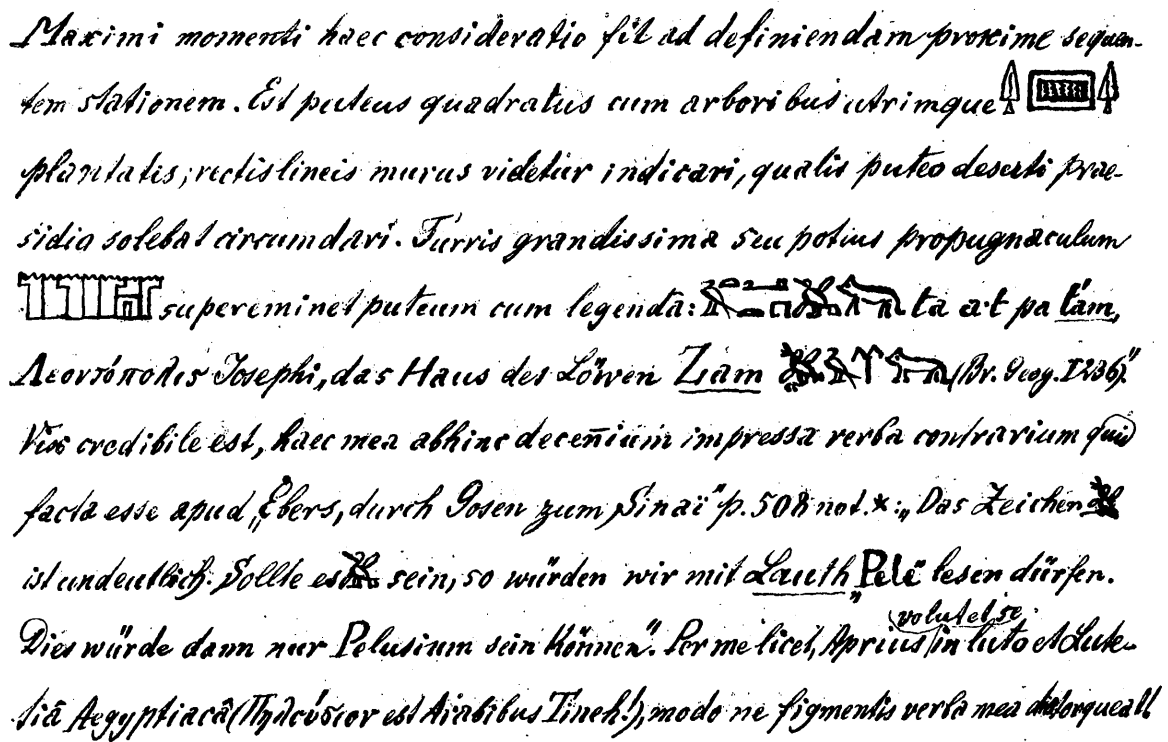 Maximi momenti haec consideratio fit ad definiendam proxime sequen-
tem stationem. Est puteus quadratus cum arboribus utrimque
plantatis; rectis lineis murus videtur indicari, qualis puteo deserti prae-
sidia solebat circumdari. Turris grandissima seu potius propugnaculum
supereminet puteum cum legenda: ta a·t pa tám,
Λεοντόπολις Josephi, „das Haus des Löwen Zam (Br. Geog. I 236)."
Vix credibile est, haec mea abhinc deceñium impressa verba contrarium quid
facta esse apud „Ebers, durch Gosen zum Sinaï" p. 508 not.*: „Das Zeichen
ist undeutlich. Sollte es sein, so würden wir mit Lauth „Pelë" lesen dürfen.
Dies würde dann nur Pelusium sein können". Per me licet, Aprius volutet se in luto et Lute-
tiâ Aegyptiacâ (Πηλούσιον est Arabibus Tineh!), modo ne figmentis verba mea distorqueat!